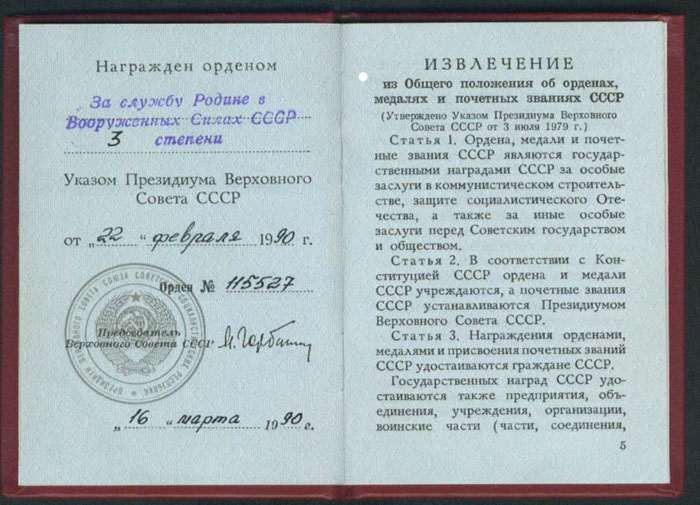 Награжден орденом
За службу Родине в
Вооруженных Силах СССР
3 степени
Указом Президиума Верховного
Совета СССР
от „22“ февраля 1990 г.
Орден № 115527
Председатель
Верховного Совета СССР М. Горбачев
„16“ марта 1990 г.
ИЗВЛЕЧЕНИЕ
из Общего положения об орденах,
медалях и почетных званиях СССР
(Утверждено Указом Президиума Верховного
Совета СССР от 3 июля 1979 г.)
Статья 1. Ордена, медали и почет-
ные звания СССР являются государ-
ственными наградами СССР за особые
заслуги в коммунистическом строитель-
стве, защите социалистического Оте-
чества, а также за иные особые
заслуги перед Советским государством
и обществом.
Статья 2. В соответствии с Кон-
ституцией СССР ордена и медали
СССР учреждаются, а почетные звания
СССР устанавливаются Президиумом
Верховного Совета СССР.
Статья 3. Награждения орденами,
медалями и присвоения почетных званий
СССР удостаиваются граждане СССР.
Государственных наград СССР удо-
стаиваются также предприятия, объ-
единения, учреждения, организации,
воинские части (части, соединения,
5